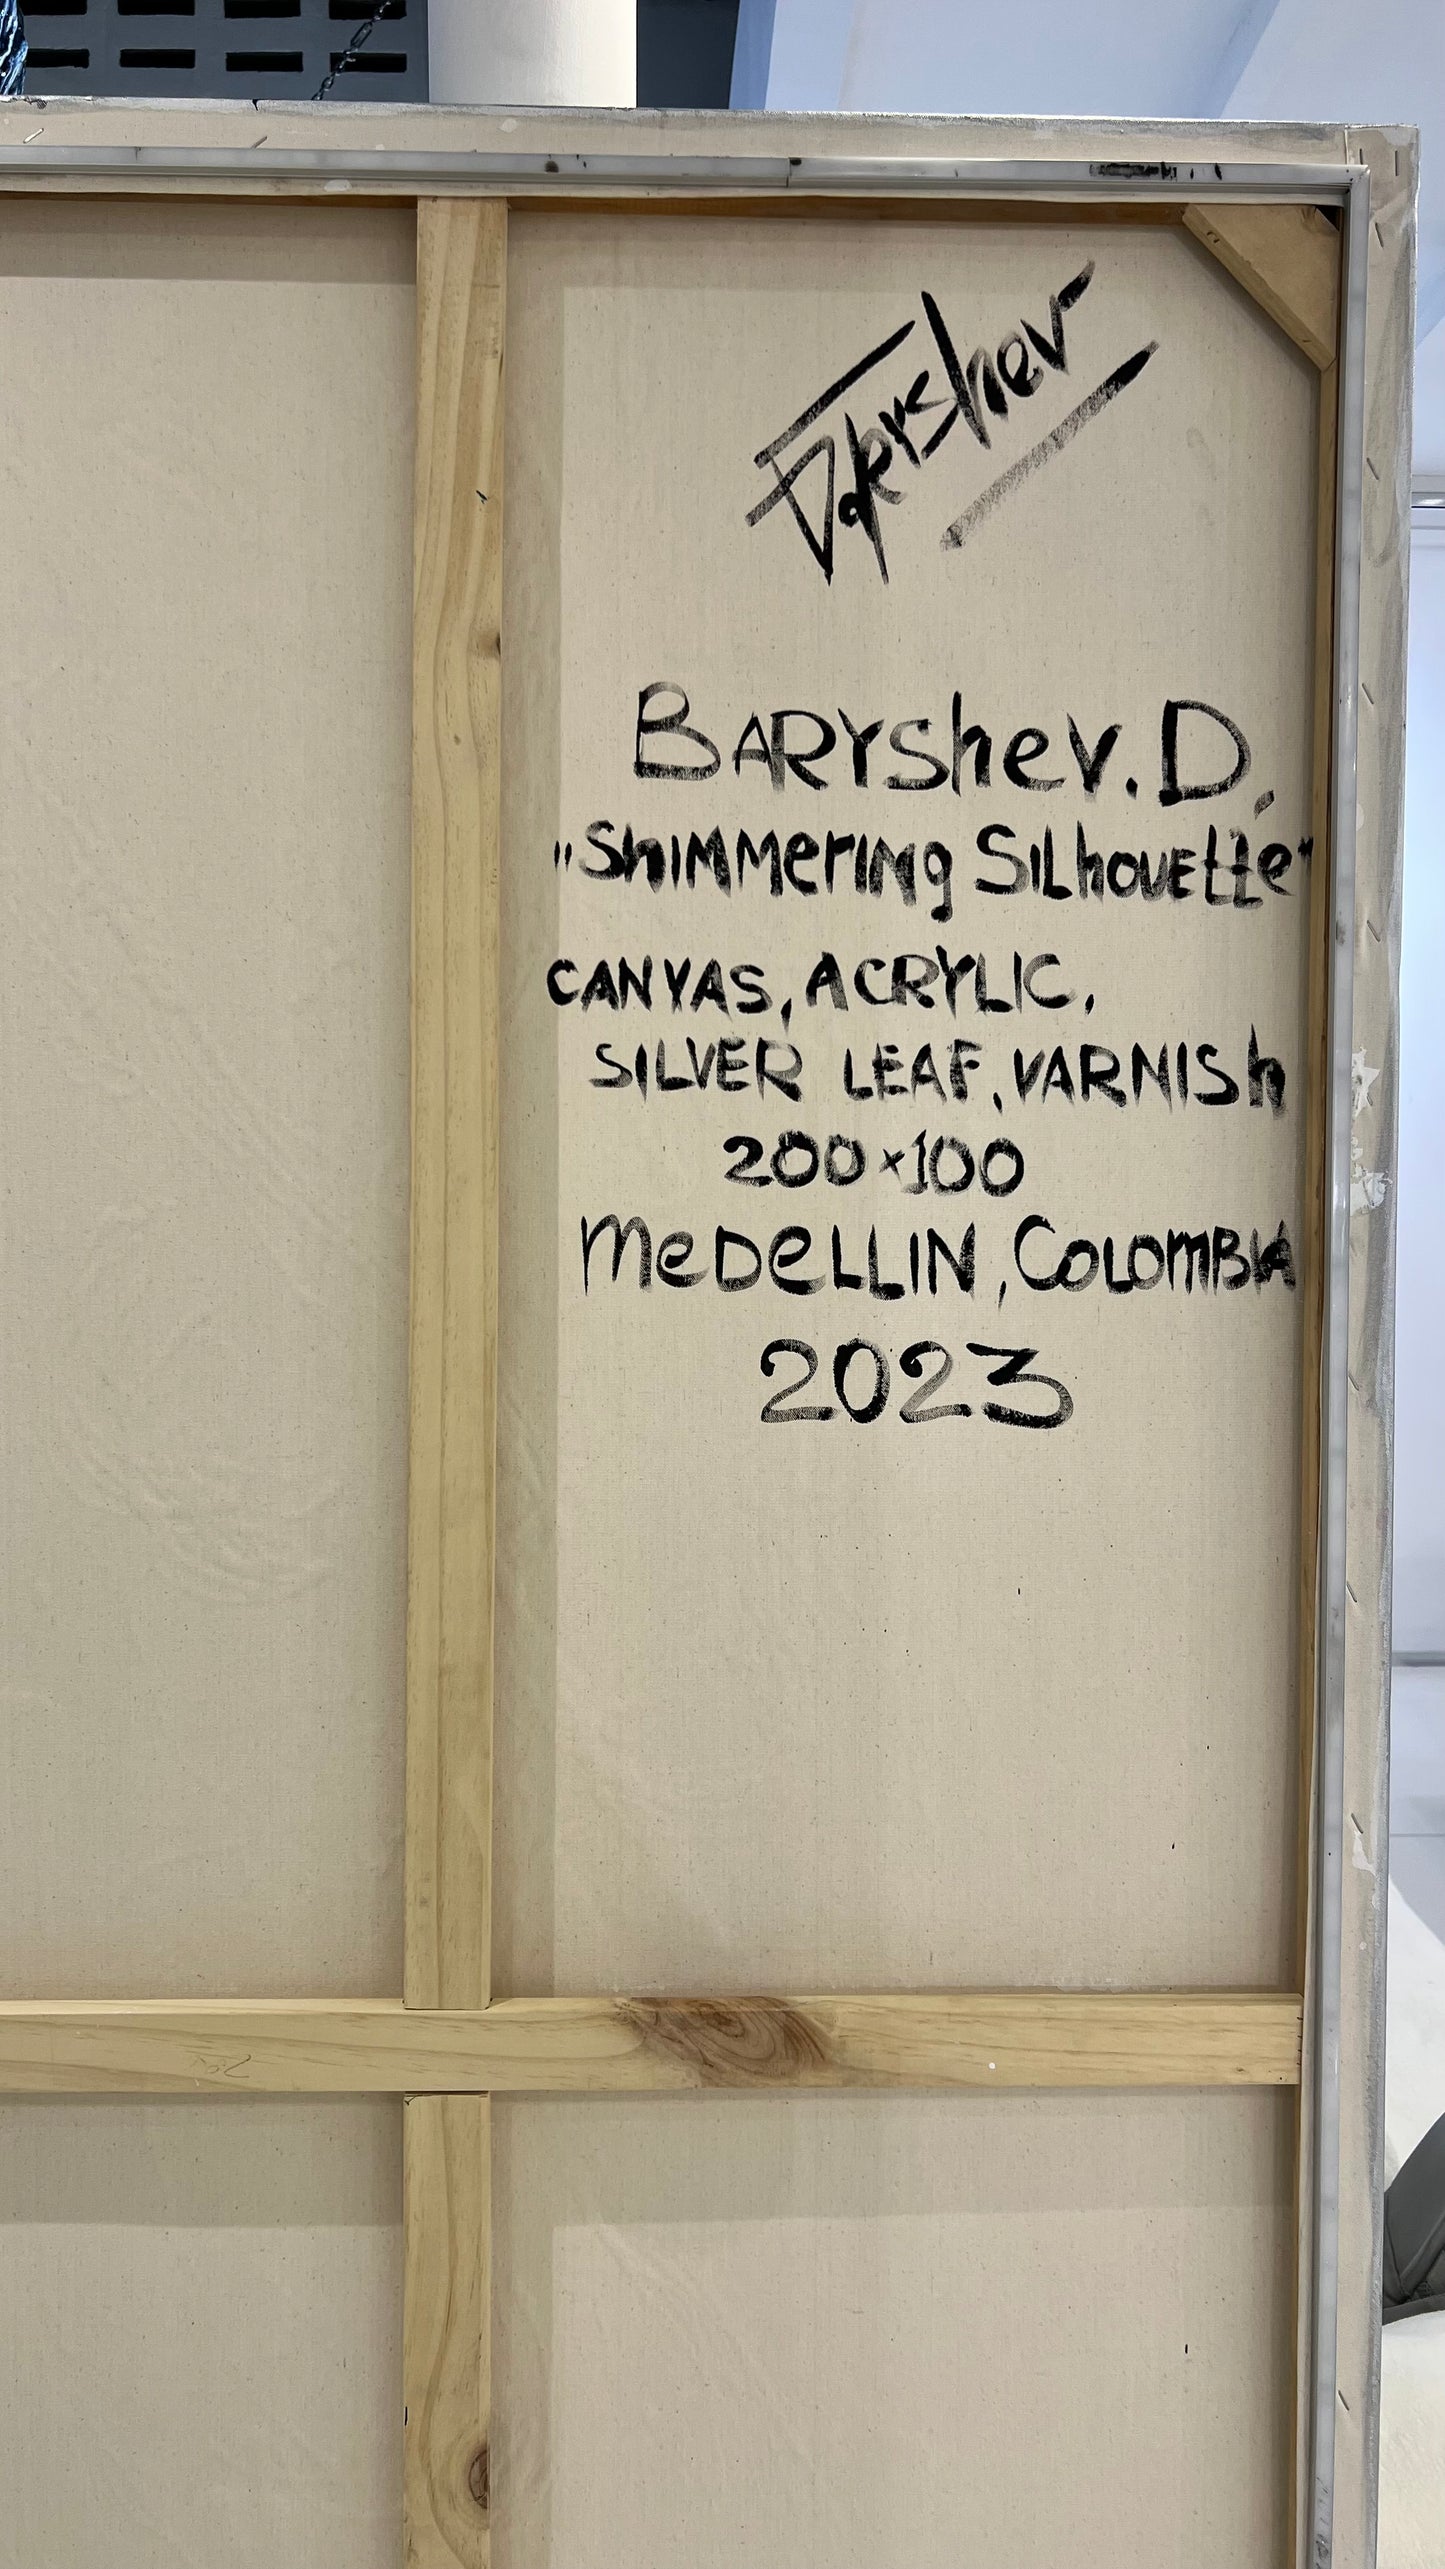 Baryshev
BARYshev. D.
"ShiMMeriNg SiLhoUEtte"
CANVAS, ACRYLIC,
SILVER LEAF, VARNISh
200×100
MeDeLLIN, ColomBIA
2023